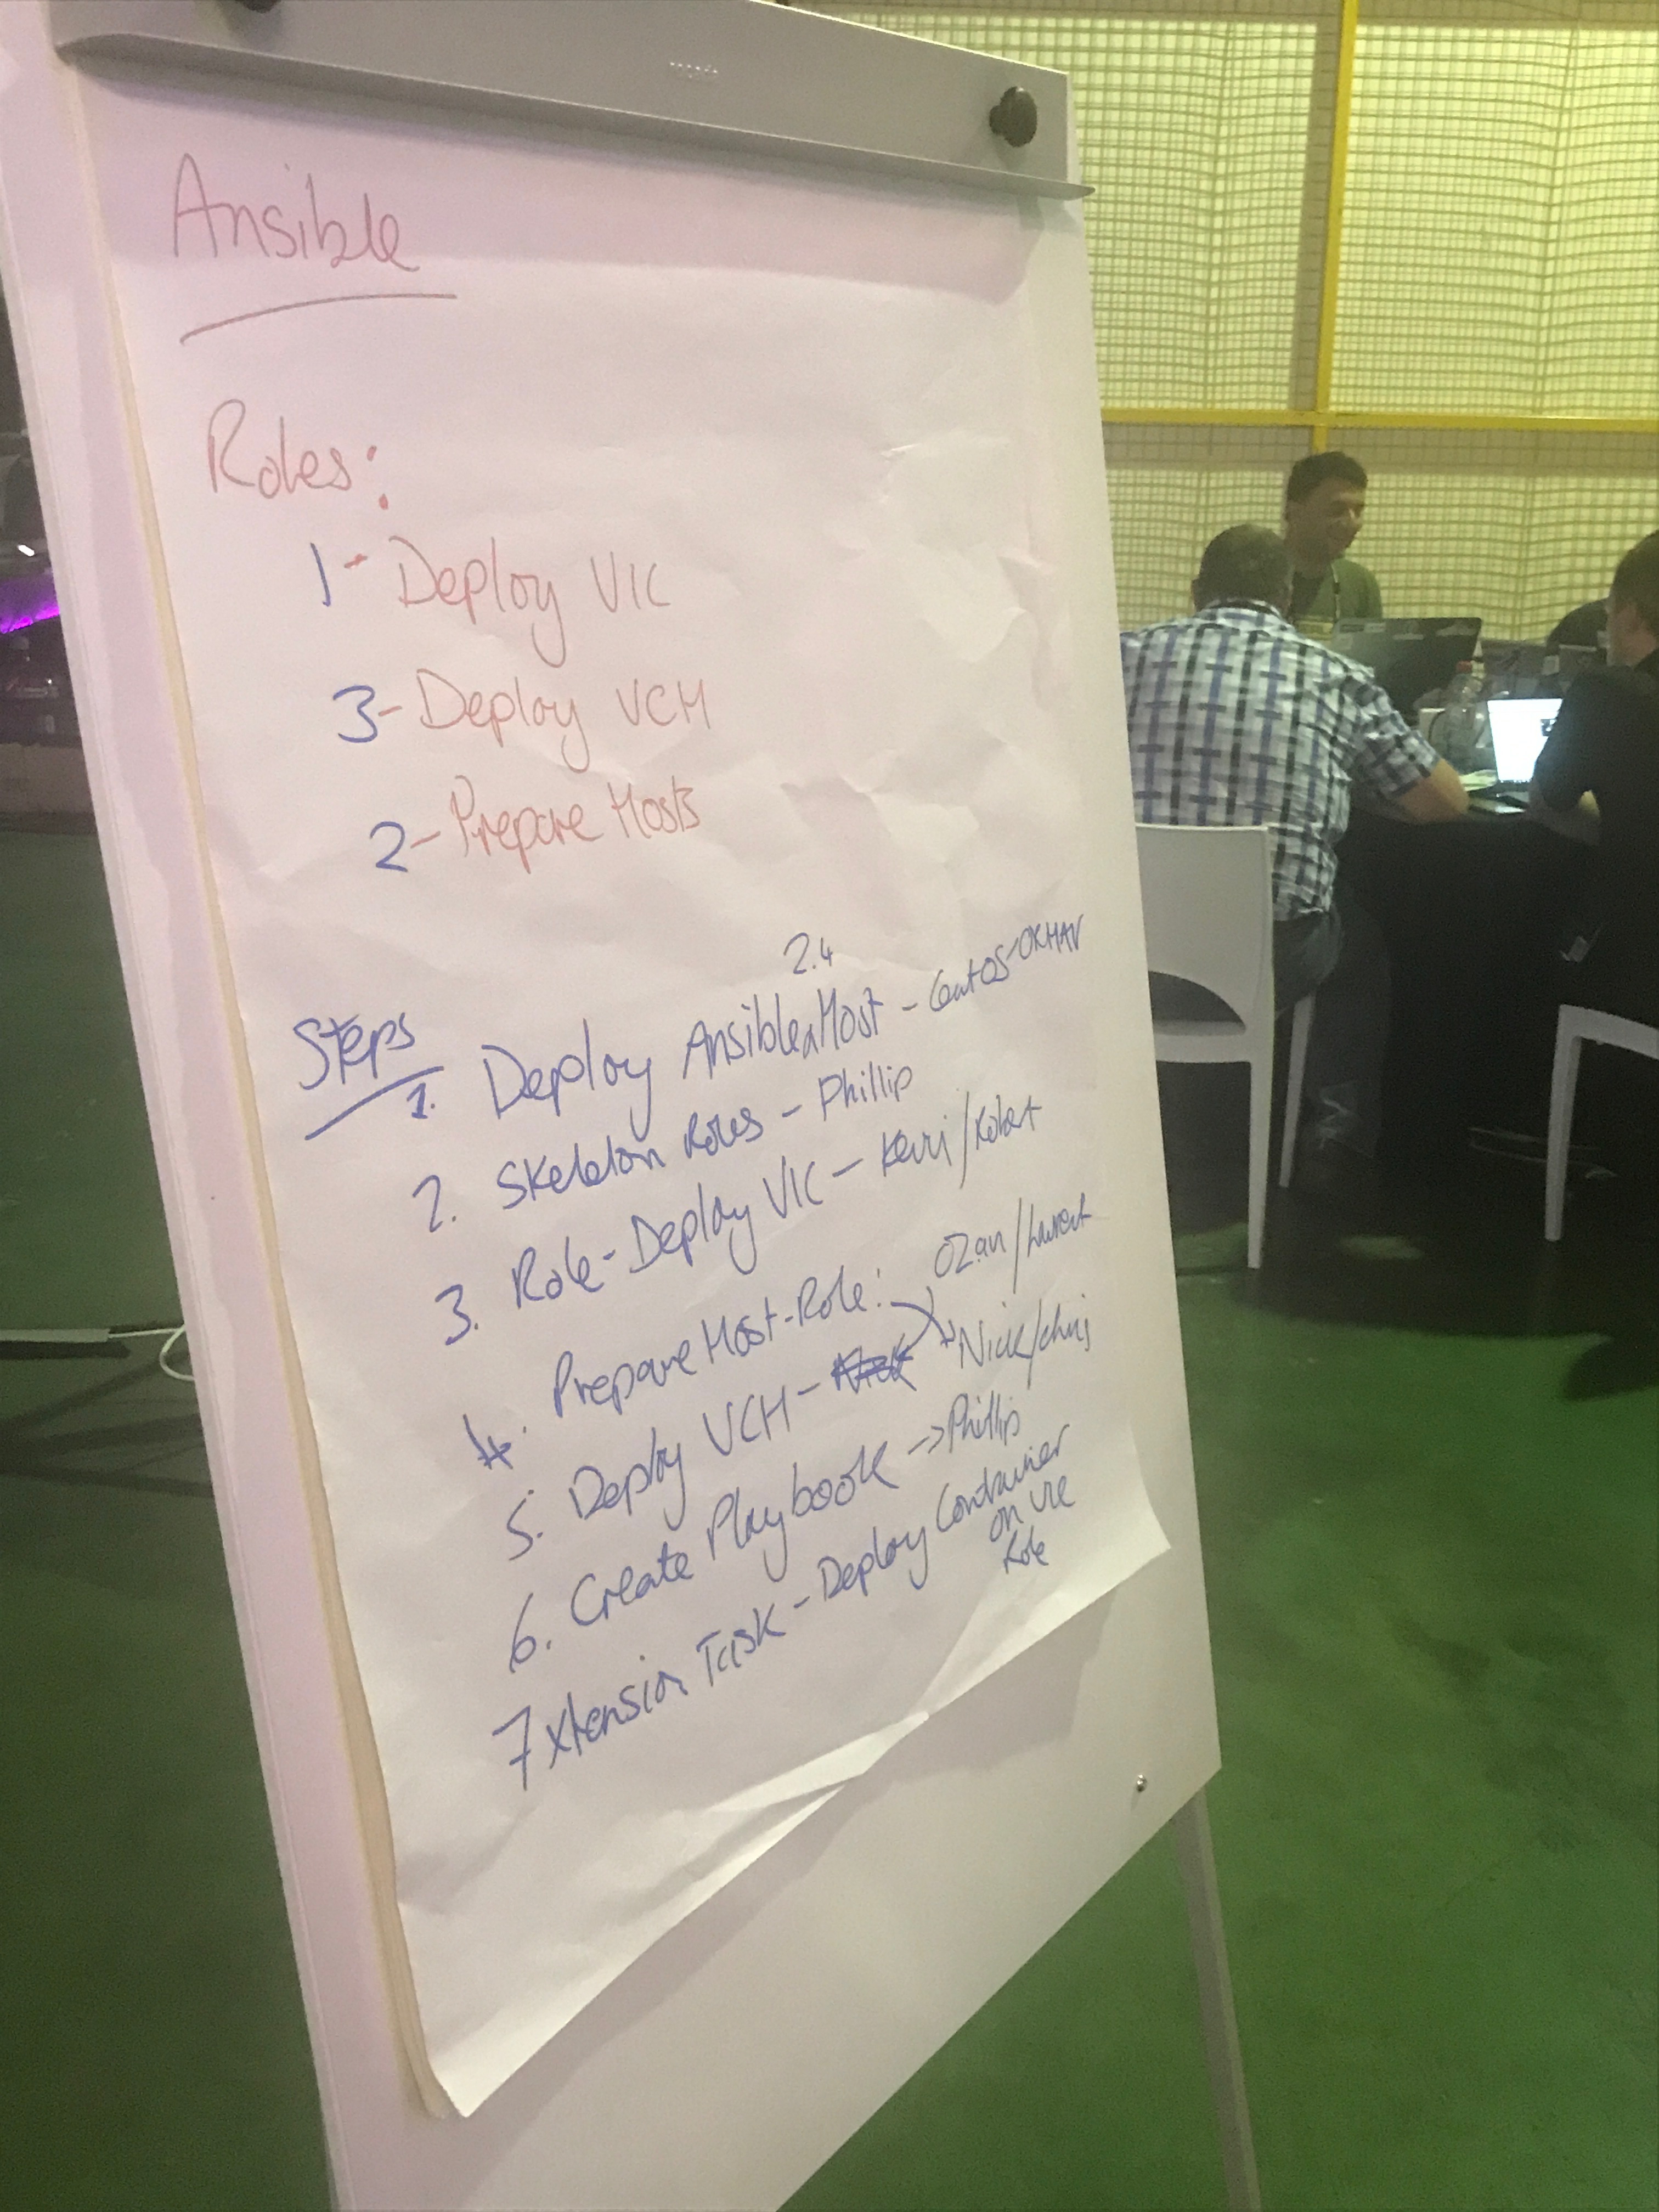 Ansible
Roles:
1- Deploy VIC
3- Deploy VCH
2- Prepare Hosts
Steps
2.4
1. Deploy Ansible Host - CentOS -
2. Skeleton Roles - Phillip
3. Role - Deploy VIC - /
4. Prepare Host-Role: OZan/
5. Deploy VCH - Nick/chris
6. Create Playbook -> Phillip
7 xtension Task - Deploy Container
on VIC
Role